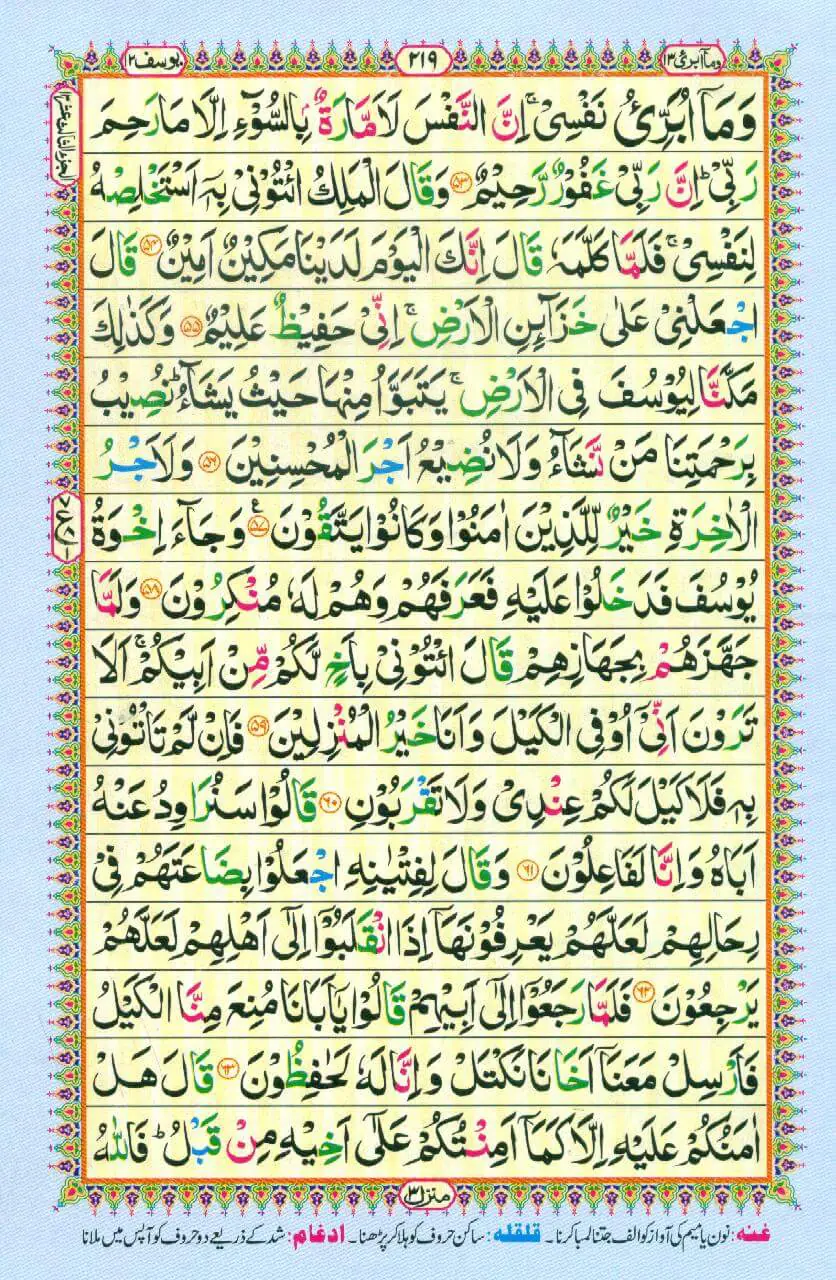 وما ابرئ ۱۳
۲۱۹
یوسف ۱۲
وَمَآ اُبَرِّئُ نَفْسِیْ ۚ اِنَّ النَّفْسَ لَاَمَّارَةٌۢ بِالسُّوْٓءِ اِلَّا مَا رَحِمَ
رَبِّیْ ؕ اِنَّ رَبِّیْ غَفُوْرٌ رَّحِیْمٌ ۝۵۳ وَقَالَ الْمَلِكُ ائْتُوْنِیْ بِهٖۤ اَسْتَخْلِصْهُ
لِنَفْسِیْ ۚ فَلَمَّا كَلَّمَهٗ قَالَ اِنَّكَ الْیَوْمَ لَدَیْنَا مَكِیْنٌ اَمِیْنٌ ۝۵۴ قَالَ
اجْعَلْنِیْ عَلٰی خَزَآئِنِ الْاَرْضِ ۚ اِنِّیْ حَفِیْظٌ عَلِیْمٌ ۝۵۵ وَكَذٰلِكَ
مَكَّنَّا لِیُوْسُفَ فِی الْاَرْضِ ۚ یَتَبَوَّاُ مِنْهَا حَیْثُ یَشَآءُ ؕ نُصِیْبُ
بِرَحْمَتِنَا مَنْ نَّشَآءُ وَلَا نُضِیْعُ اَجْرَ الْمُحْسِنِیْنَ ۝۵۶ وَلَاَجْرُ
الْاٰخِرَةِ خَیْرٌ لِّلَّذِیْنَ اٰمَنُوْا وَكَانُوْا یَتَّقُوْنَ ۝۵۷ وَجَآءَ اِخْوَةُ
یُوْسُفَ فَدَخَلُوْا عَلَیْهِ فَعَرَفَهُمْ وَهُمْ لَهٗ مُنْكِرُوْنَ ۝۵۸ وَلَمَّا
جَهَّزَهُمْ بِجَهَازِهِمْ قَالَ ائْتُوْنِیْ بِاَخٍ لَّكُمْ مِّنْ اَبِیْكُمْ ۚ اَلَا
تَرَوْنَ اَنِّیْۤ اُوْفِی الْكَیْلَ وَاَنَا خَیْرُ الْمُنْزِلِیْنَ ۝۵۹ فَاِنْ لَّمْ تَاْتُوْنِیْ
بِهٖ فَلَا كَیْلَ لَكُمْ عِنْدِیْ وَلَا تَقْرَبُوْنِ ۝۶۰ قَالُوْا سَنُرَاوِدُ عَنْهُ
اَبَاهُ وَاِنَّا لَفَاعِلُوْنَ ۝۶۱ وَقَالَ لِفِتْیٰنِهِ اجْعَلُوْا بِضَاعَتَهُمْ فِیْ
رِحَالِهِمْ لَعَلَّهُمْ یَعْرِفُوْنَهَاۤ اِذَا انْقَلَبُوْۤا اِلٰۤی اَهْلِهِمْ لَعَلَّهُمْ
یَرْجِعُوْنَ ۝۶۲ فَلَمَّا رَجَعُوْۤا اِلٰۤی اَبِیْهِمْ قَالُوْا یٰۤاَبَانَا مُنِعَ مِنَّا الْكَیْلُ
فَاَرْسِلْ مَعَنَاۤ اَخَانَا نَكْتَلْ وَاِنَّا لَهٗ لَحٰفِظُوْنَ ۝۶۳ قَالَ هَلْ
اٰمَنُكُمْ عَلَیْهِ اِلَّا كَمَاۤ اَمِنْتُكُمْ عَلٰۤی اَخِیْهِ مِنْ قَبْلُ ؕ فَاللّٰهُ
منزل ۳
غنه: نون یا میم کی آواز کو الف جتنا لمبا کرنا۔ قلقله: ساکن حروف کو ہلا کر پڑھنا۔ ادغام: شد کے ذریعے دو حروف کو آپس میں ملانا